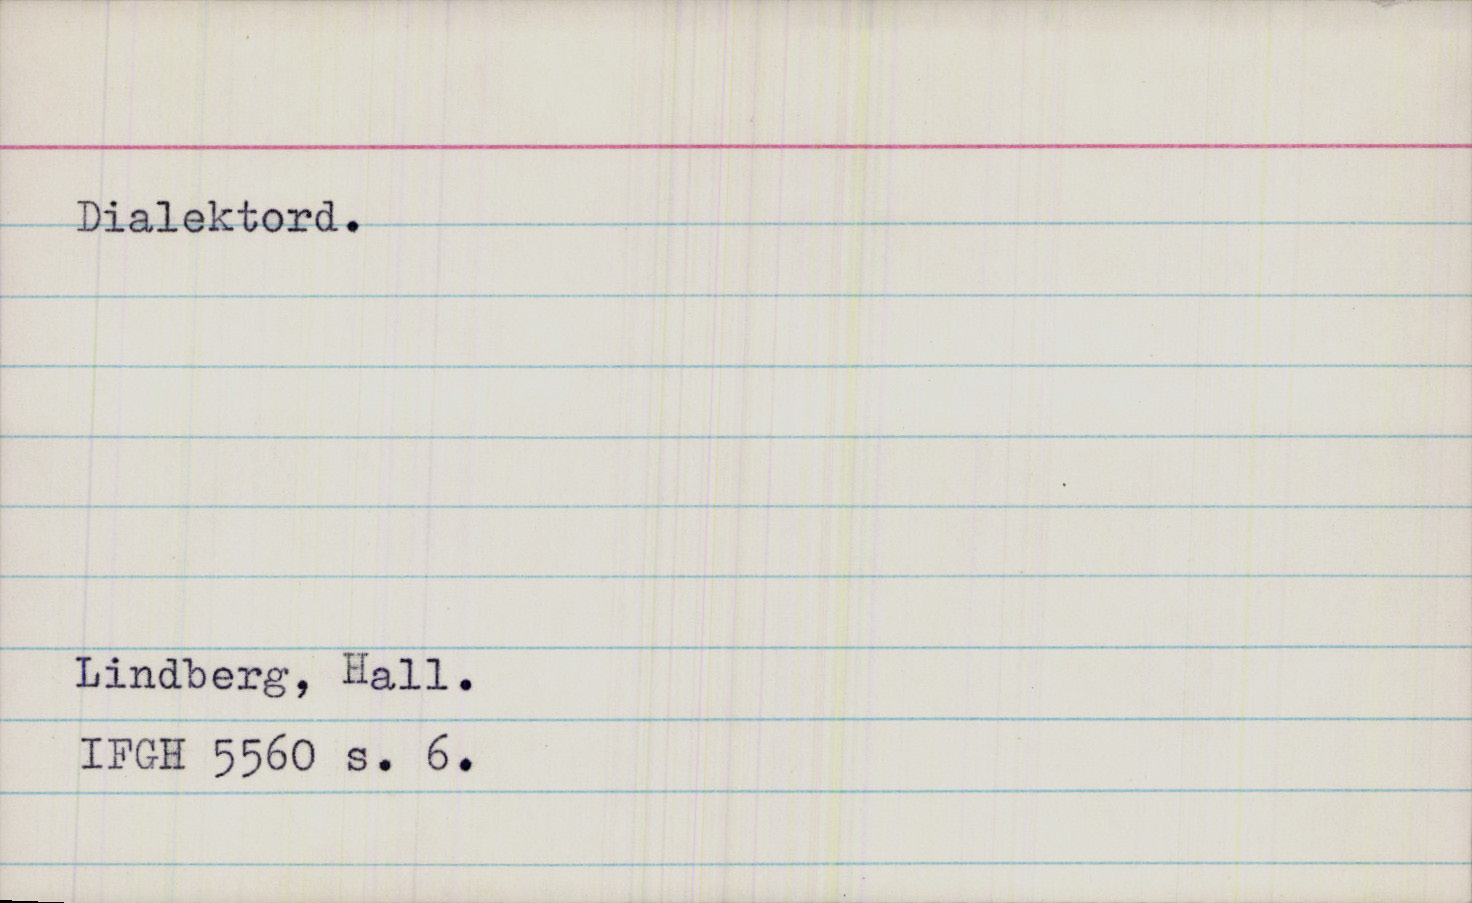 Dialektord.
Lindberg, Hall.
IFGH 5560 s. 6.